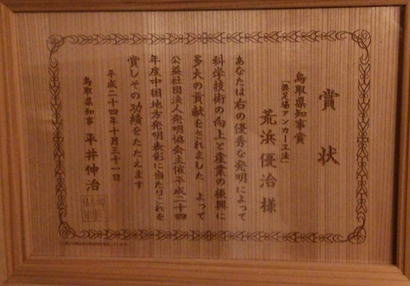 賞状
鳥取県知事賞
「満足場アンカー工法」
荒浜優治様
あなたは右の優秀な発明によって
科学技術の向上と産業の振興に
多大の貢献をされました よって
公益社団法人発明協会主催平成二十四
年度中国地方発明表彰に当たりこれを
賞しその功績をたたえます
平成二十四年十月三十一日
鳥取県知事 平井伸治